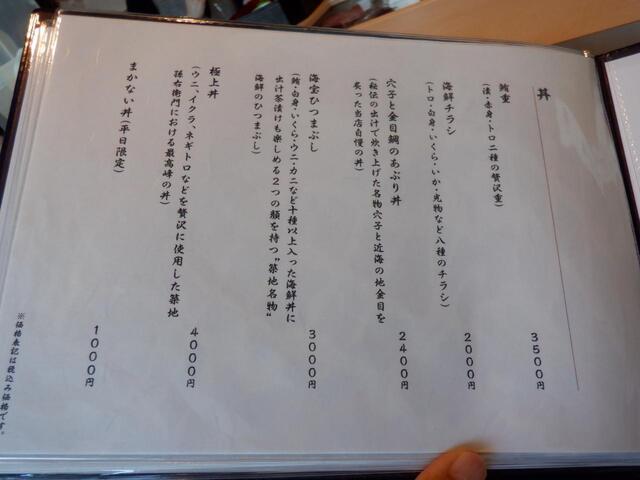 丼
鮪重
(漬・赤身・トロ二種の贅沢重)
3500円
海鮮チラシ
(トロ・白身・いくら・いか・光物など八種のチラシ)
2000円
穴子と金目鯛のあぶり丼
(秘伝の出汁で炊き上げた名物穴子と近海の地金目を
炙った当店自慢の丼)
2400円
海宝ひつまぶし
(鮪・白身・いくら・ウニ・カニなど十種以上入った海鮮丼に
出汁茶漬けも楽しめる2つの顔を持つ"築地名物"
海鮮のひつまぶし)
3000円
極上丼
(ウニ、イクラ、ネギトロなどを贅沢に使用した築地
孫右衛門における最高峰の丼)
4000円
まかない丼(平日限定)
1000円
※価格表記は税込み価格です。